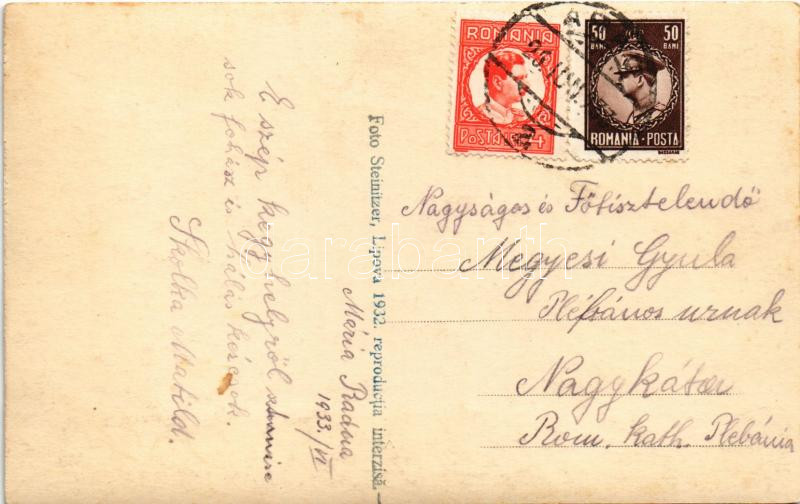 ROMANIA
POSTA
4
50 50
BANI BANI
ROMANIA-POSTA
Nagyságos és Főtisztelendő
Megyesi Gyula
Plébános urnak
Nagykáta
Rom. kath. Plebánia
Foto Steinitzer, Lipova 1932. reproducția interzisă.
Mária Radna
1933/VI
E szép kegyhelyről
sok fohász és hálás kézcsók.
Skolka Matild.
darabanth